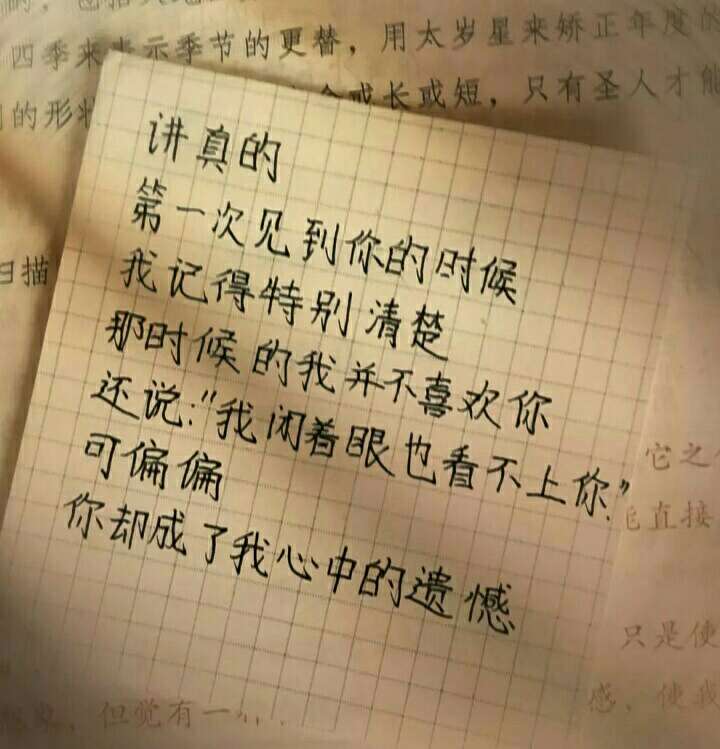 四季来表示季节的更替，用太岁星来矫正年度的
的形状
或长或短，只有圣人才能
扫描
讲真的
第一次见到你的时候
我记得特别清楚
那时候的我并不喜欢你
还说："我闭着眼也看不上你."
可偏偏
你却成了我心中的遗憾
它之
能直接
只是使
感，使我
但觉有一